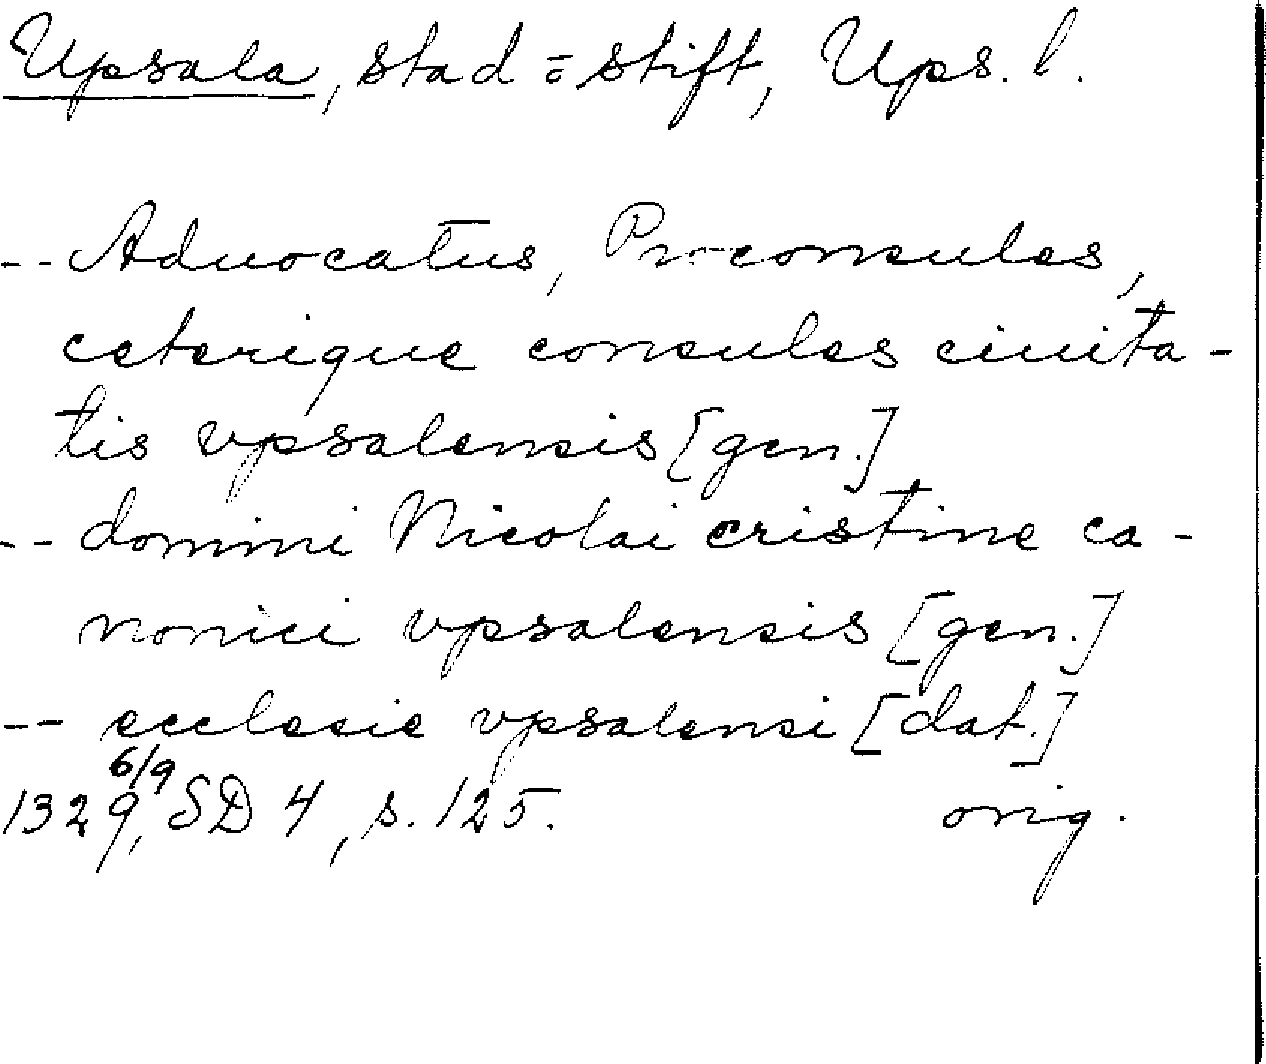 Upsala, stad o stift, Ups. l.
-- Aduocatus, Proconsules,
ceterique consules ciuita-
tis vpsalensis [gen.]
-- domini Nicolai cristine ca-
nonici vpsalensis [gen.]
-- ecclesie vpsalensi [dat.]
1329 6/9, SD 4, s. 125. orig.